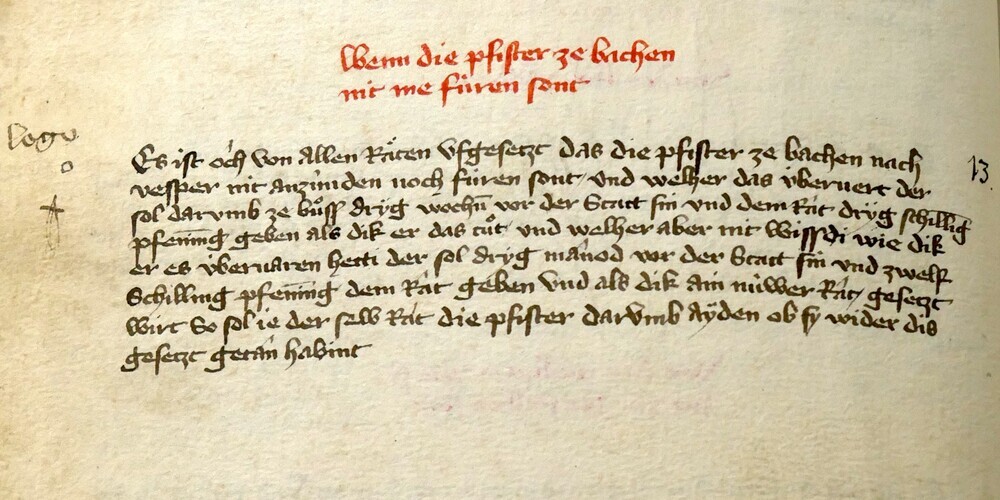 Wenn die pfister ze bachen
nit me fúren sont
Es ist och von allen Räten vfgesetzt das die pfister ze bachen nach
vesper nit anzúnden noch fúren sont vnd welher das úberuert der
sol darvmb ze bůss dryg wochn vor der Statt sin vnd dem Rät dryg schilling
pfening geben als dik er das tůt vnd welher aber nit wissdi wie dik
er es úberuaren hetti der sol dryg mänod vor der Statt sin vnd zwelf
Schilling pfening dem Rät geben vnd als dik ain núwer Rät gesetzt
wirt So sol ie der selb Rät die pfister darvmb ayden ob sy wider dis
gesetzt getän habint
13